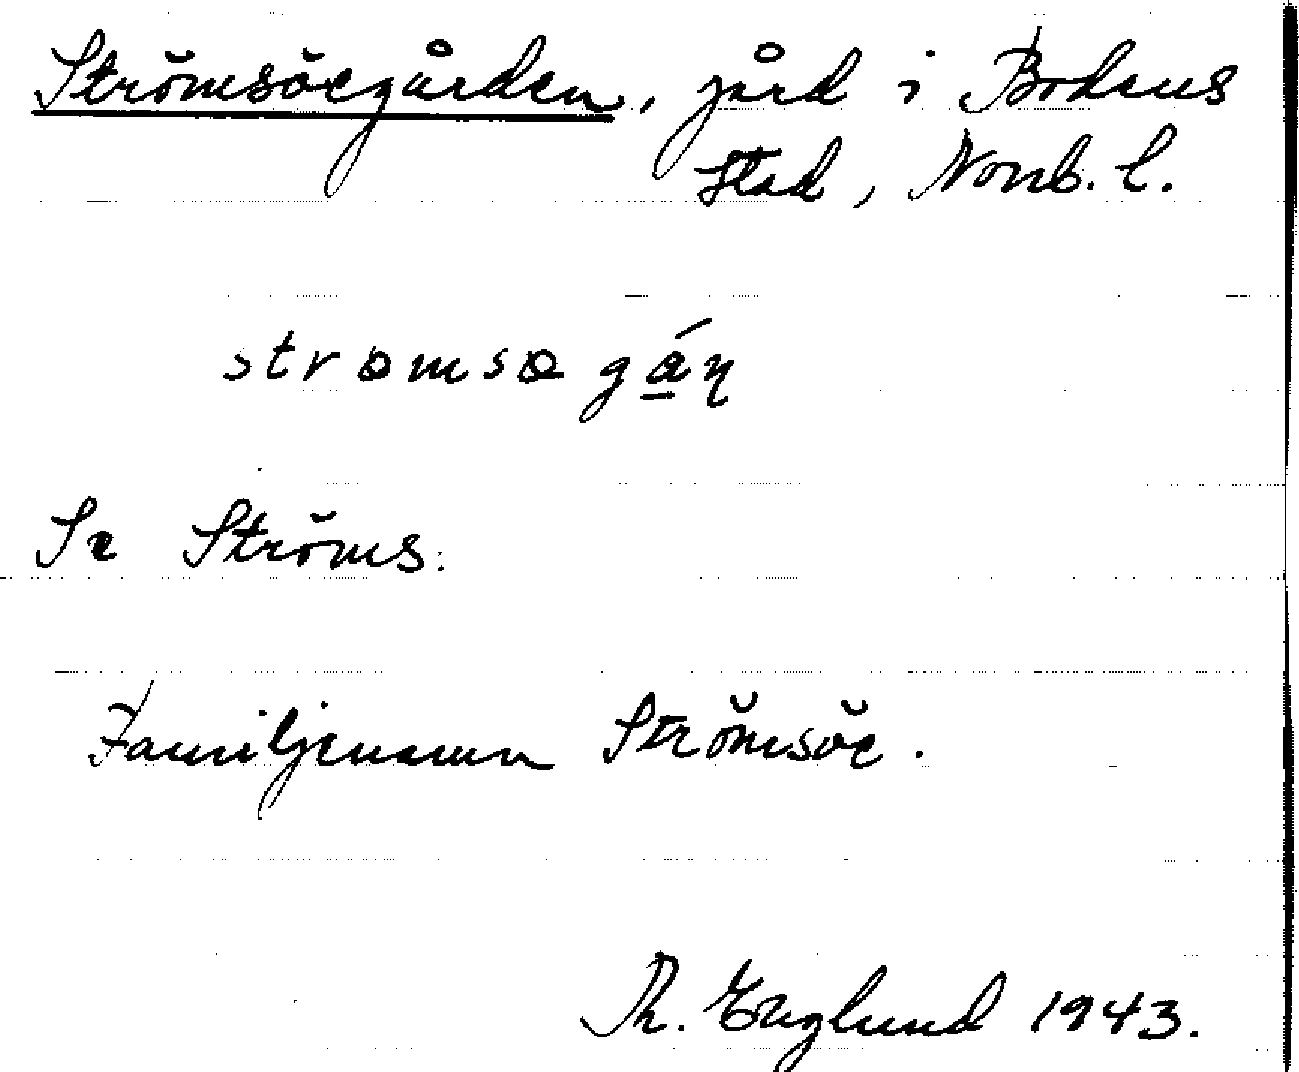 Strömsöegården, gård i Bodens
stad, Norrb. l.
strømsøgá̱ɳ
Se Ströms:
Familjenamn Strömsöe.
Th. Englund 1943.